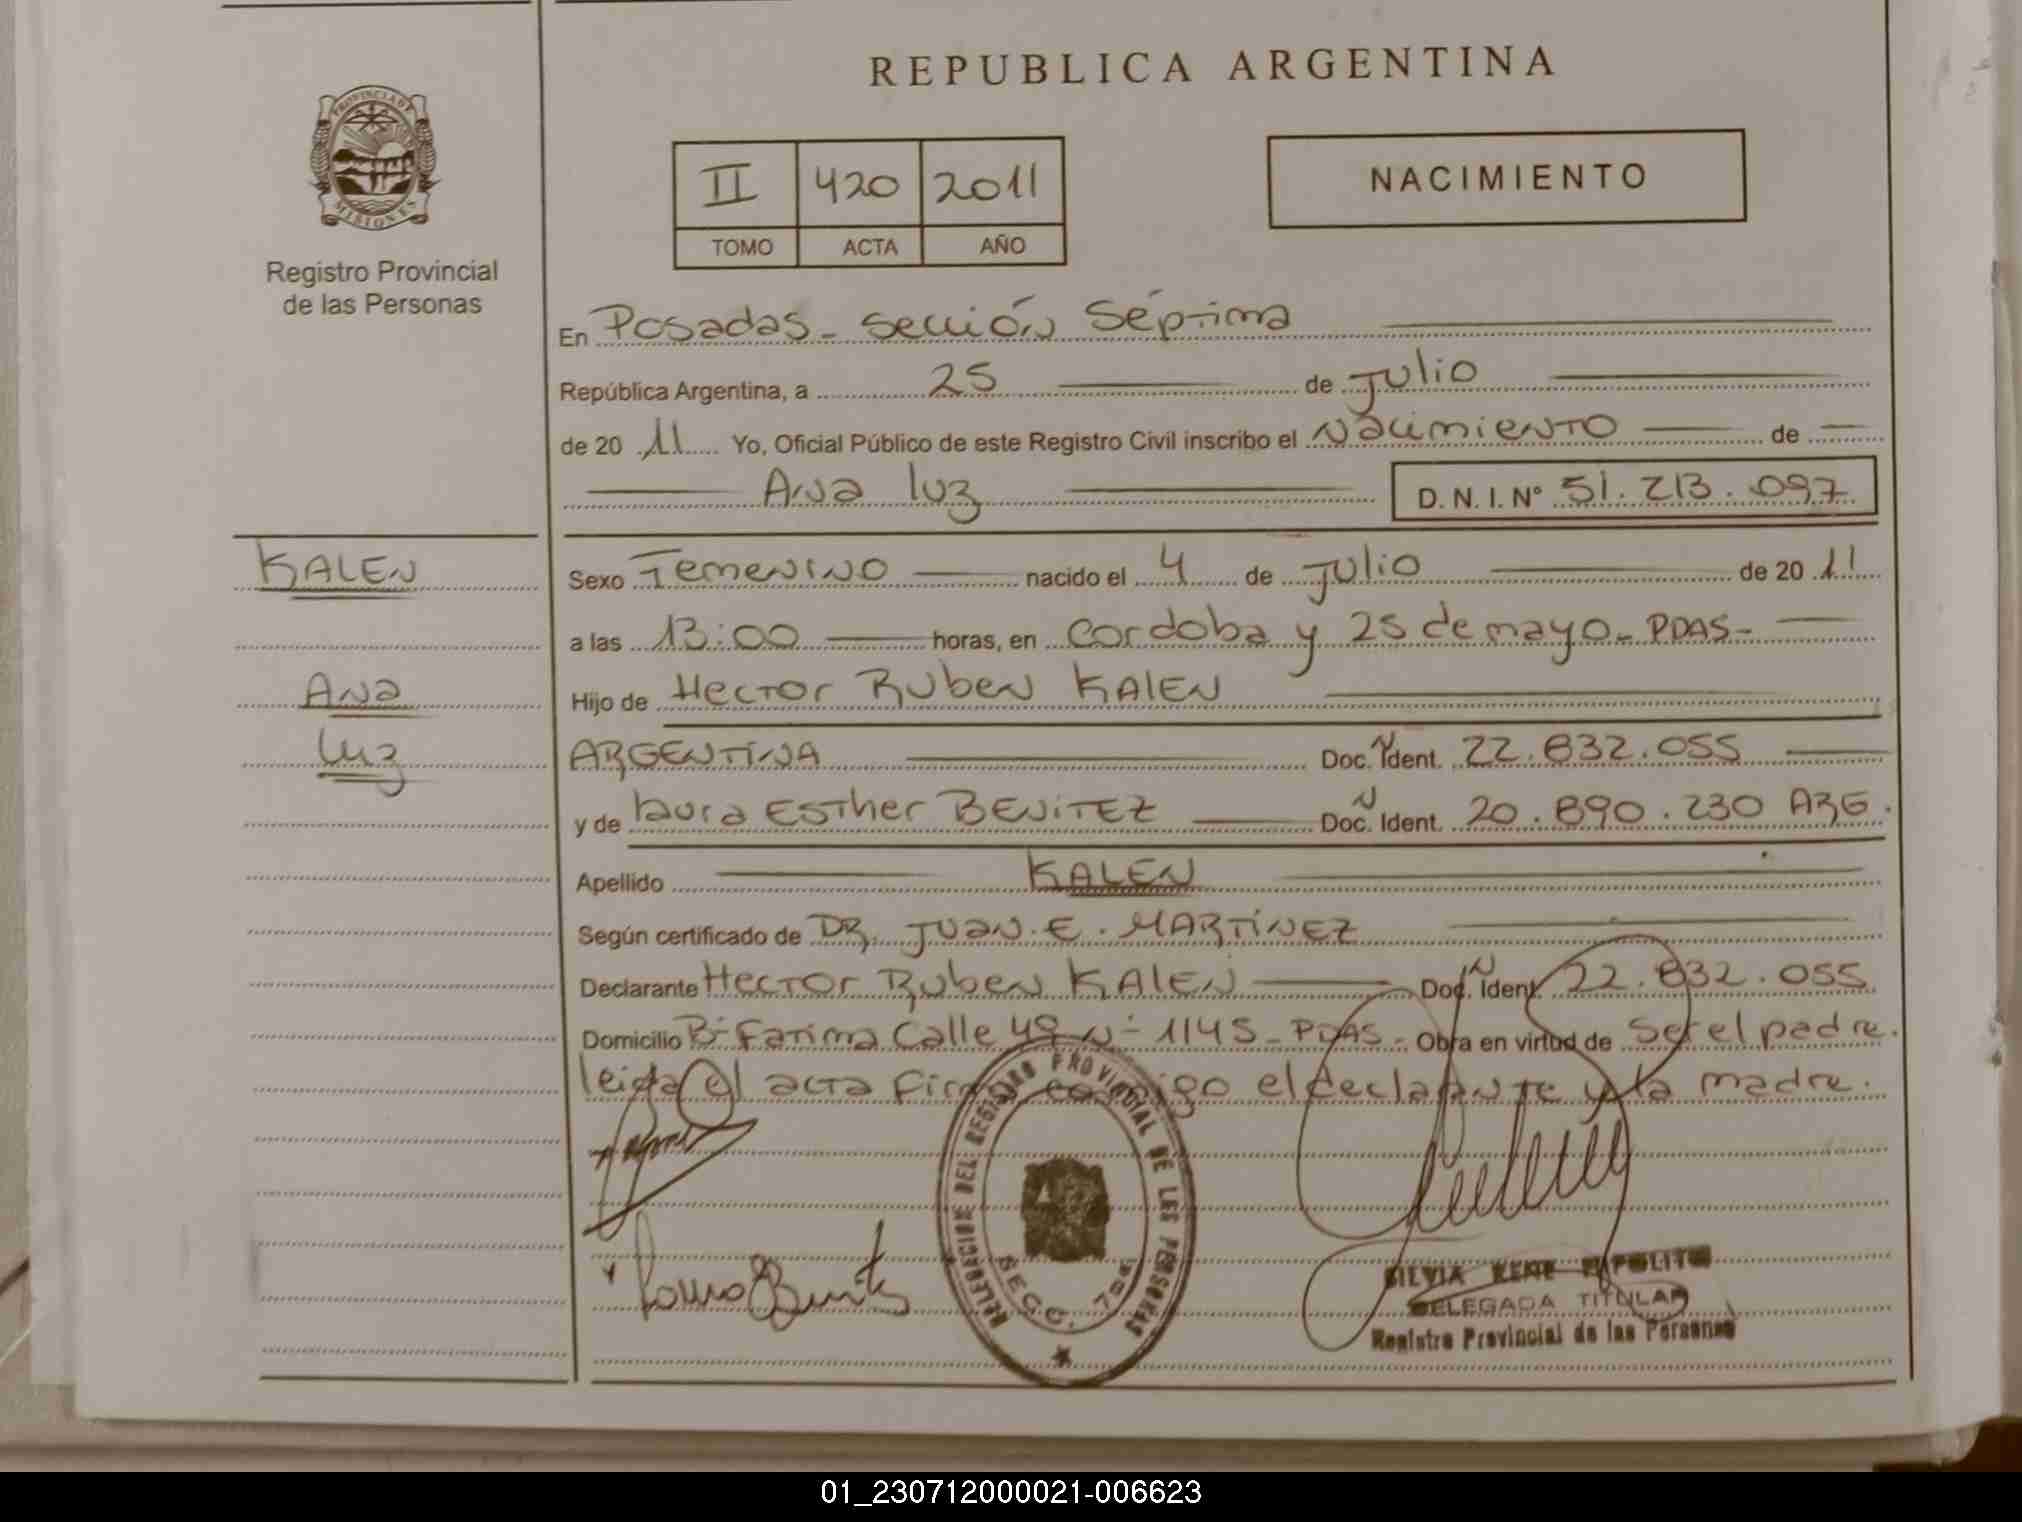 REPUBLICA ARGENTINA
PROVINCIA DE MISIONES
Registro Provincial
de las Personas
II 420 2011
TOMO ACTA AÑO
NACIMIENTO
En Posadas - sección séptima
República Argentina, a 25 de Julio
de 20 11 Yo, Oficial Público de este Registro Civil inscribo el Nacimiento de
Ana luz D. N. I. N° 51.213.097
KALEN
Ana
luz
Sexo Femenino nacido el 4 de Julio de 20 11
a las 13:00 horas, en Cordoba y 25 de mayo - PDAS -
Hijo de Hector Ruben KALEN
ARGENTINA Doc. Ident. 22.832.055
y de laura ESTHer BENITEZ Doc. Ident. 20.890.230 ARG.
Apellido KALEN
Según certificado de DR. JUAN. E. MARTÍNEZ
Declarante Hector Ruben KALEN Doc. Ident. 22.832.055
Domicilio B° Fatima Calle 49 N° 1145 - PDAS - Obra en virtud de ser el padre.
leida el acta firma conmigo el declarante y la madre.
DELEGACION DEL REGISTRO PROVINCIAL DE LAS PERSONAS
SECC. 7ma
SILVIA RENE HIPOLITO
DELEGADA TITULAR
Registro Provincial de las Personas
01_230712000021-006623